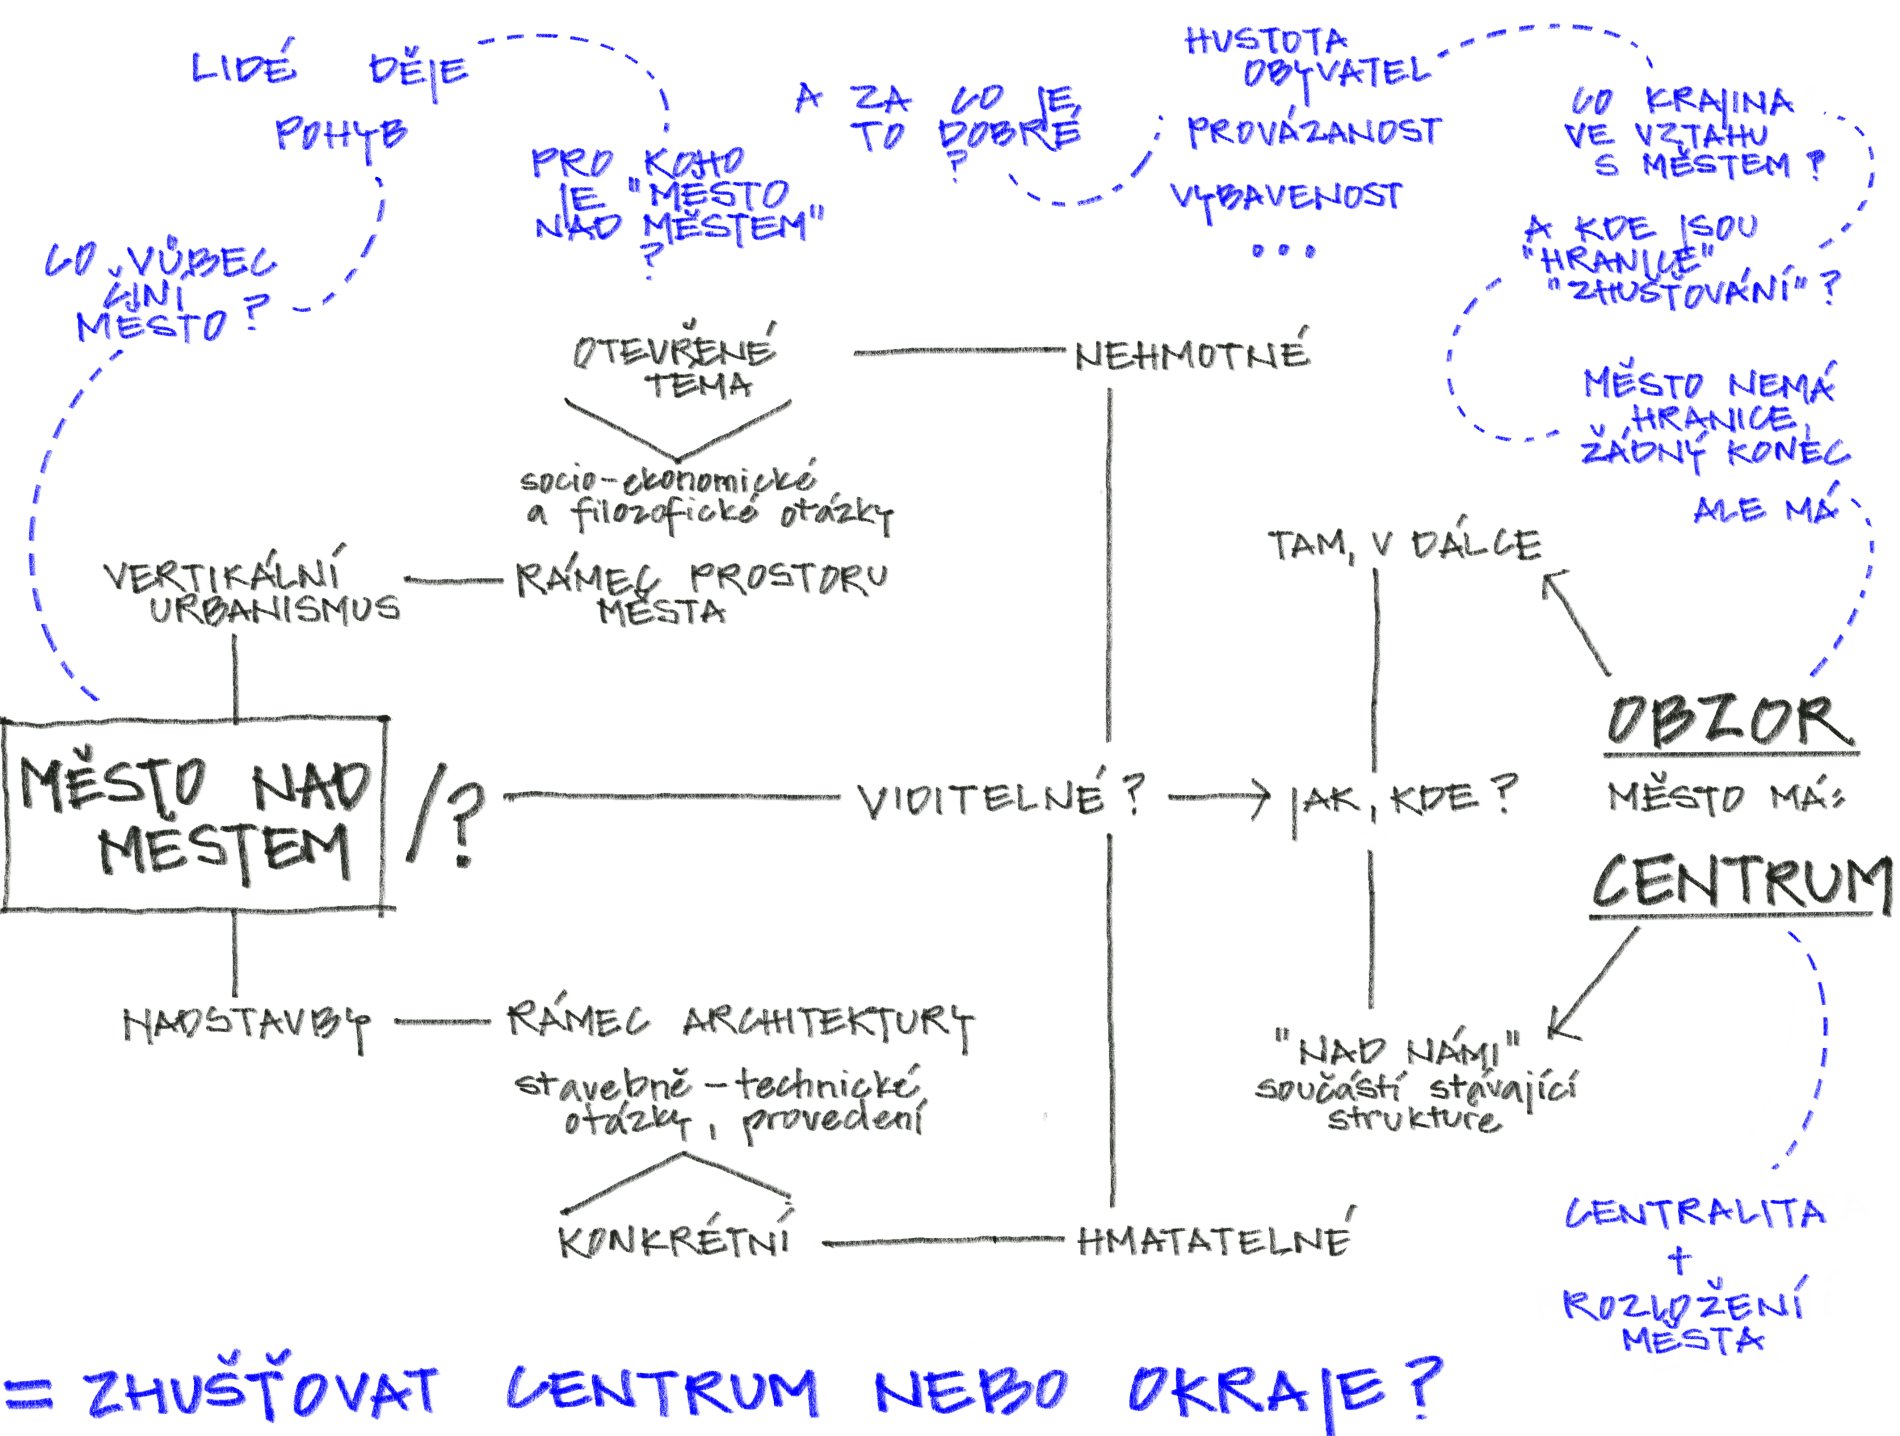 LIDÉ DĚJE
POHYB
CO VŮBEC
ČINÍ
MĚSTO?
PRO KOHO
JE "MĚSTO
NAD MĚSTEM"
?
A ZA CO JE
TO DOBRÉ
?
HUSTOTA
OBYVATEL
PROVÁZANOST
VYBAVENOST
...
CO KRAJINA
VE VZTAHU
S MĚSTEM?
A KDE JSOU
"HRANICE"
"ZHUŠŤOVÁNÍ"?
MĚSTO NEMÁ
HRANICE,
ŽÁDNÝ KONEC
ALE MÁ
OTEVŘENÉ
TÉMA
NEHMOTNÉ
socio-ekonomické
a filozofické otázky
VERTIKÁLNÍ
URBANISMUS
RÁMEC PROSTORU
MĚSTA
TAM, V DÁLCE
MĚSTO NAD
MĚSTEM
/?
VIDITELNÉ?
JAK, KDE?
OBZOR
MĚSTO MÁ:
CENTRUM
NADSTAVBY
RÁMEC ARCHITEKTURY
stavebně-technické
otázky, provedení
"NAD NÁMI"
součástí stávající
struktuře
KONKRÉTNÍ
HMATATELNÉ
CENTRALITA
+
ROZLOŽENÍ
MĚSTA
= ZHUŠŤOVAT CENTRUM NEBO OKRAJE?